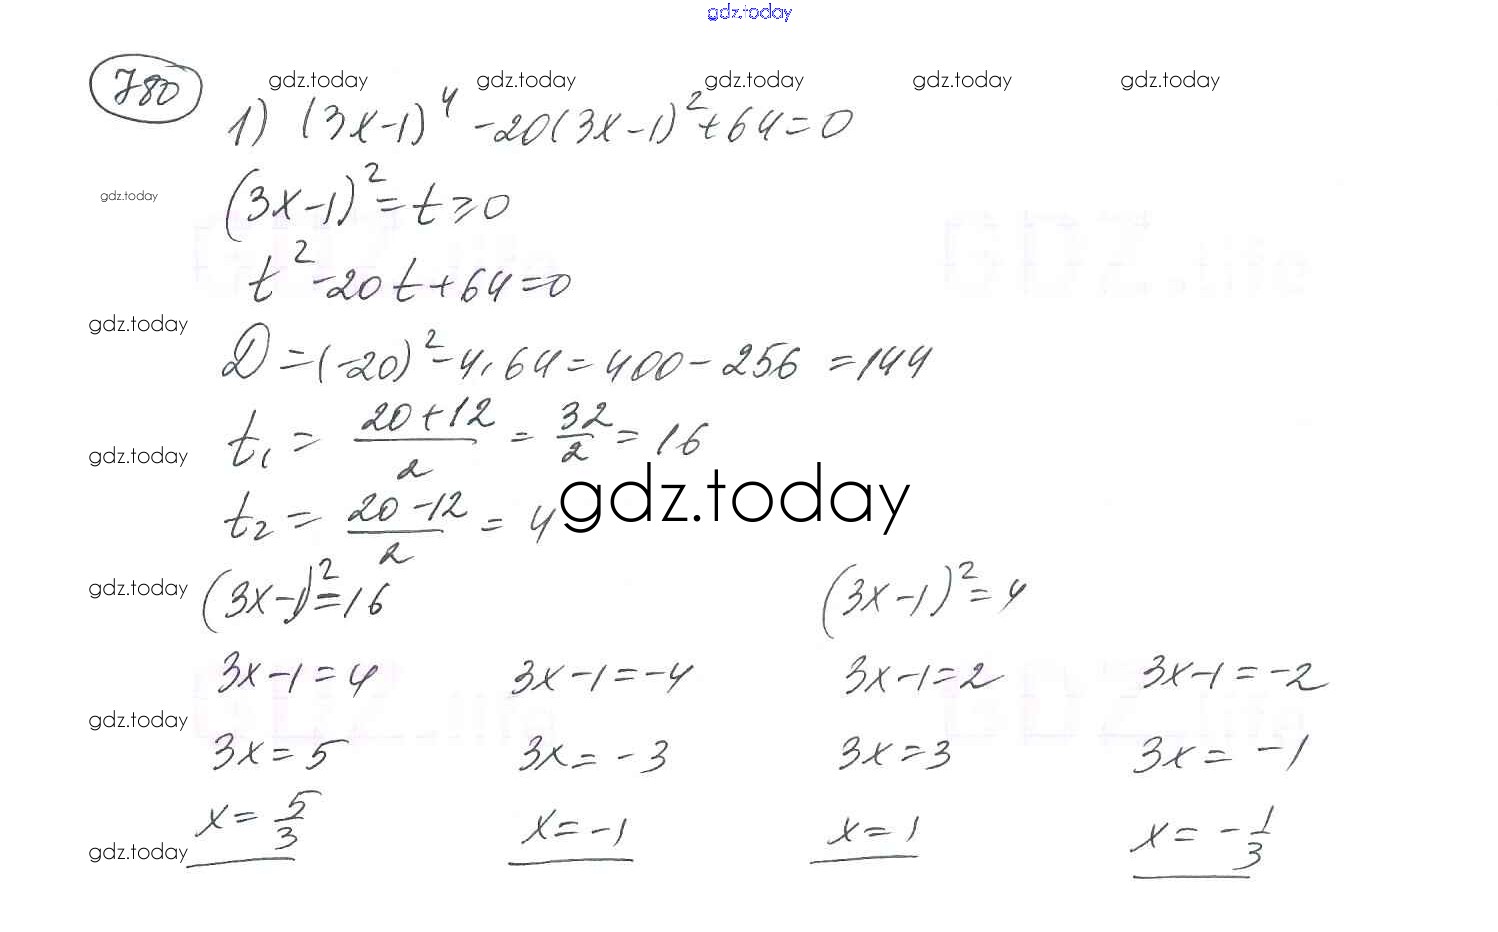 gdz.today
780
gdz.today gdz.today gdz.today gdz.today gdz.today
1) (3x-1)⁴ -20(3x-1)²+64=0
gdz.today
(3x-1)²=t≥0
GDZ.life GDZ.life
t²-20t+64=0
gdz.today
D=(-20)²-4·64=400-256=144
t₁ = (20+12)/2 = 32/2 = 16
gdz.today
gdz.today
t₂ = (20-12)/2 = 4
gdz.today
(3x-1)²=16 (3x-1)²=4
3x-1=4 3x-1=-4 3x-1=2 3x-1=-2
GDZ.life GDZ.life
gdz.today
3x=5 3x=-3 3x=3 3x=-1
x=5/3 x=-1 x=1 x=-1/3
gdz.today